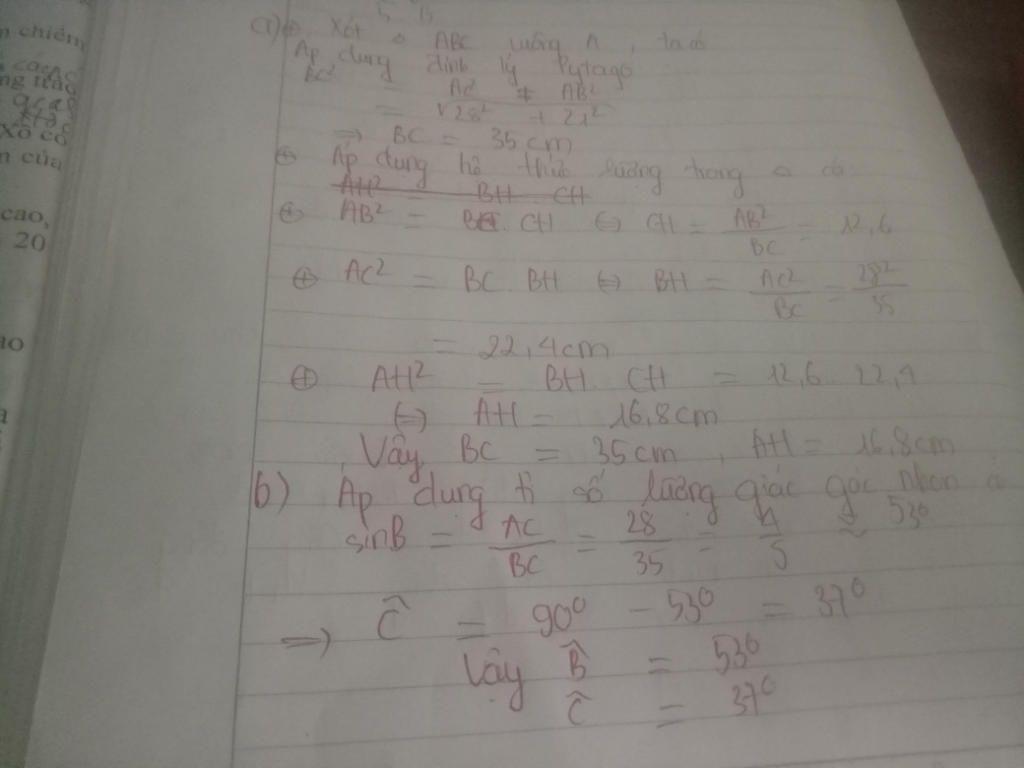 n chiếm
ng trào
Xô có
n của
cao,
20
ao
a) ⊕ Xét △ ABC vuông A, ta có
Áp dụng định lý Pytago
BC² = AC² + AB²
= √28² + 21²
=> BC = 35 cm
⊕ Áp dụng hệ thức lượng trong △ có
AH² BH CH
⊕ AB² = BC. CH <=> CH = AB²/BC = 12,6
⊕ AC² = BC. BH <=> BH = AC²/BC = 28²/35
= 22,4cm
⊕ AH² = BH. CH = 12,6. 22,4
<=> AH = 16,8cm
Vậy BC = 35cm, AH = 16,8cm
b) Áp dụng tỉ số lượng giác góc nhọn
sinB = AC/BC = 28/35 = 4/5 ≈ 53°
=> Ĉ = 90° - 53° = 37°
Vậy B̂ = 53°
Ĉ = 37°